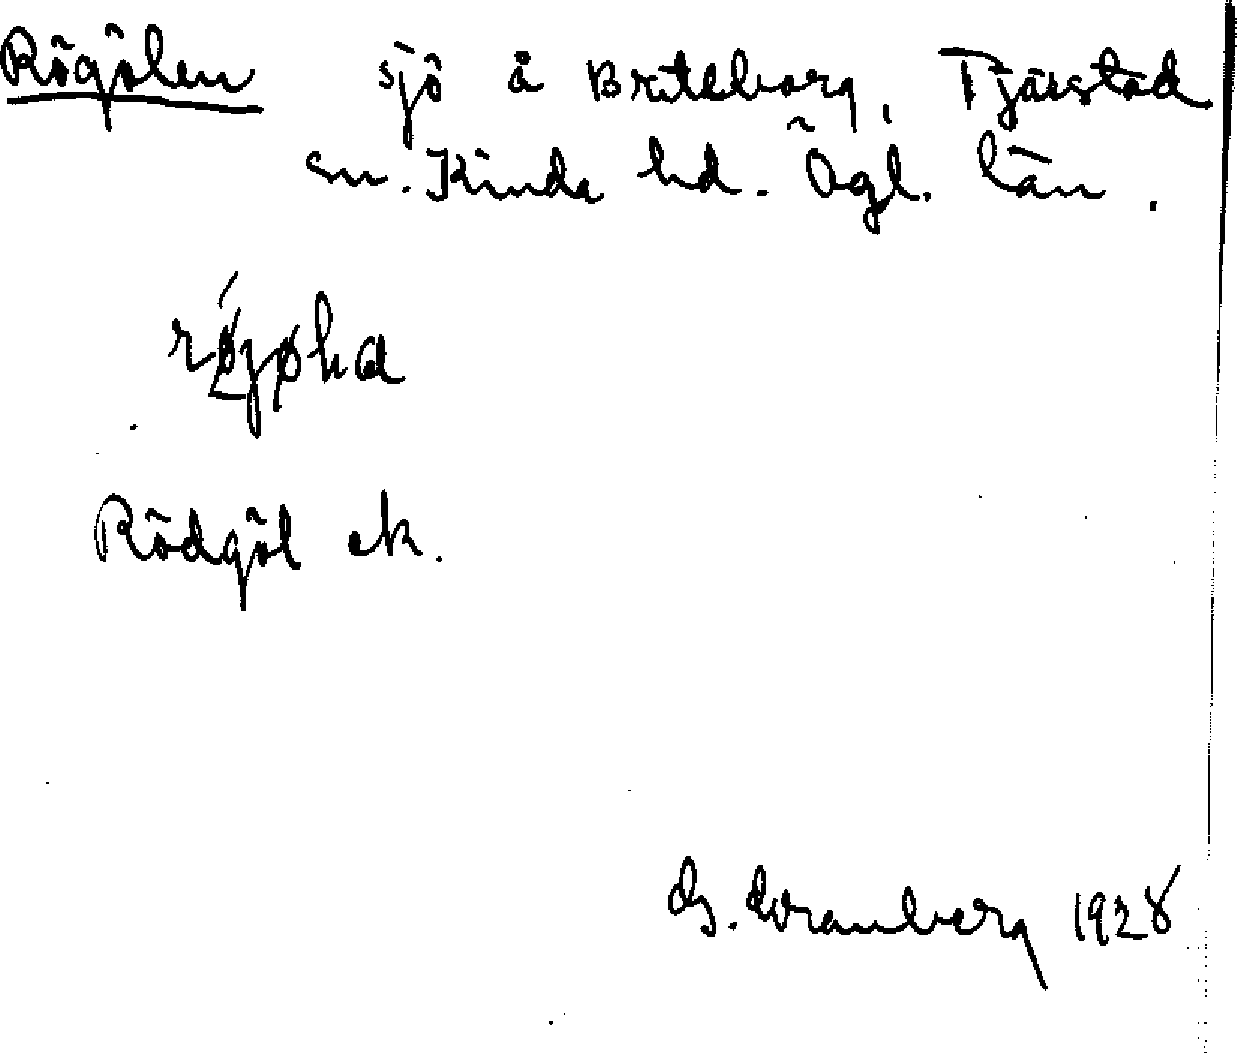 Rögölen sjö å Briteborg, Tjärstad
sn. Kinda hd. Ögl. län.
Rödgöl ek.
G. Franberg 1928